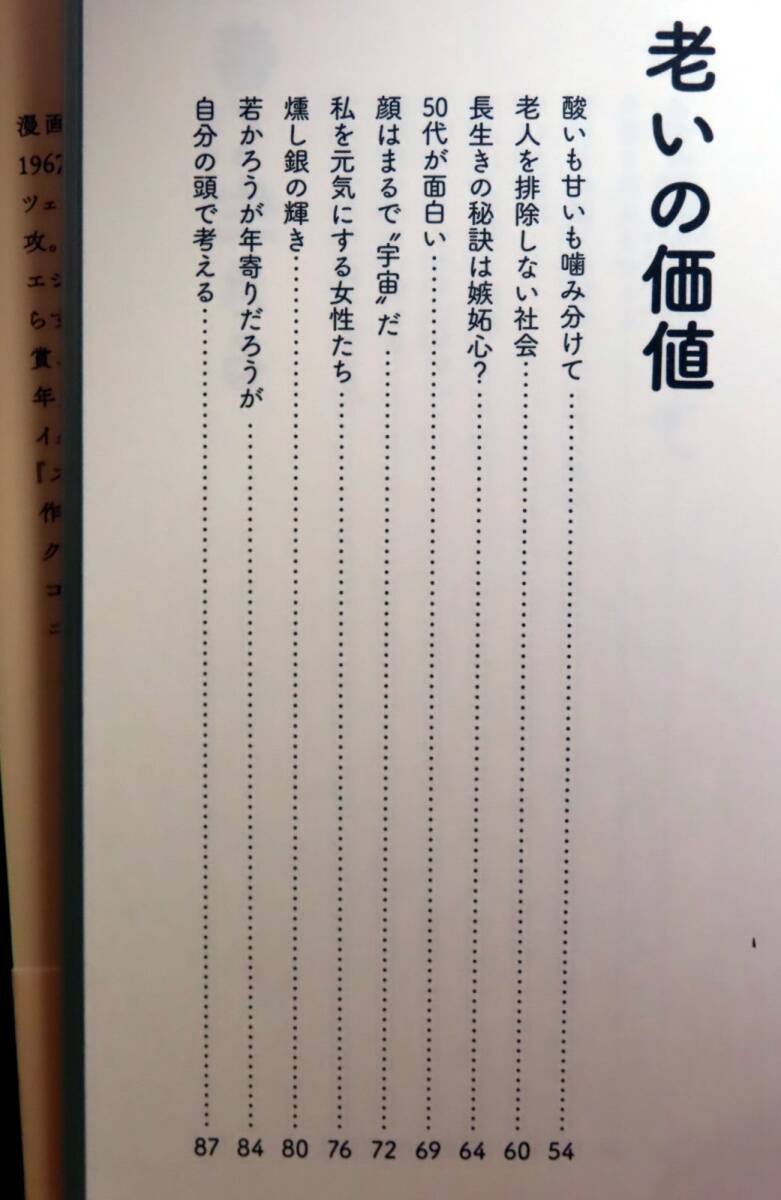 老いの価値
酸いも甘いも噛み分けて……54
老人を排除しない社会……60
長生きの秘訣は嫉妬心？……64
50代が面白い……69
顔はまるで〝宇宙〟だ……72
私を元気にする女性たち……76
燻し銀の輝き……80
若かろうが年寄りだろうが……84
自分の頭で考える……87
漫画
1967
ツェ
攻。
エジ
らす
賞、
年
イ
『ス
作
ク
コ
ニ